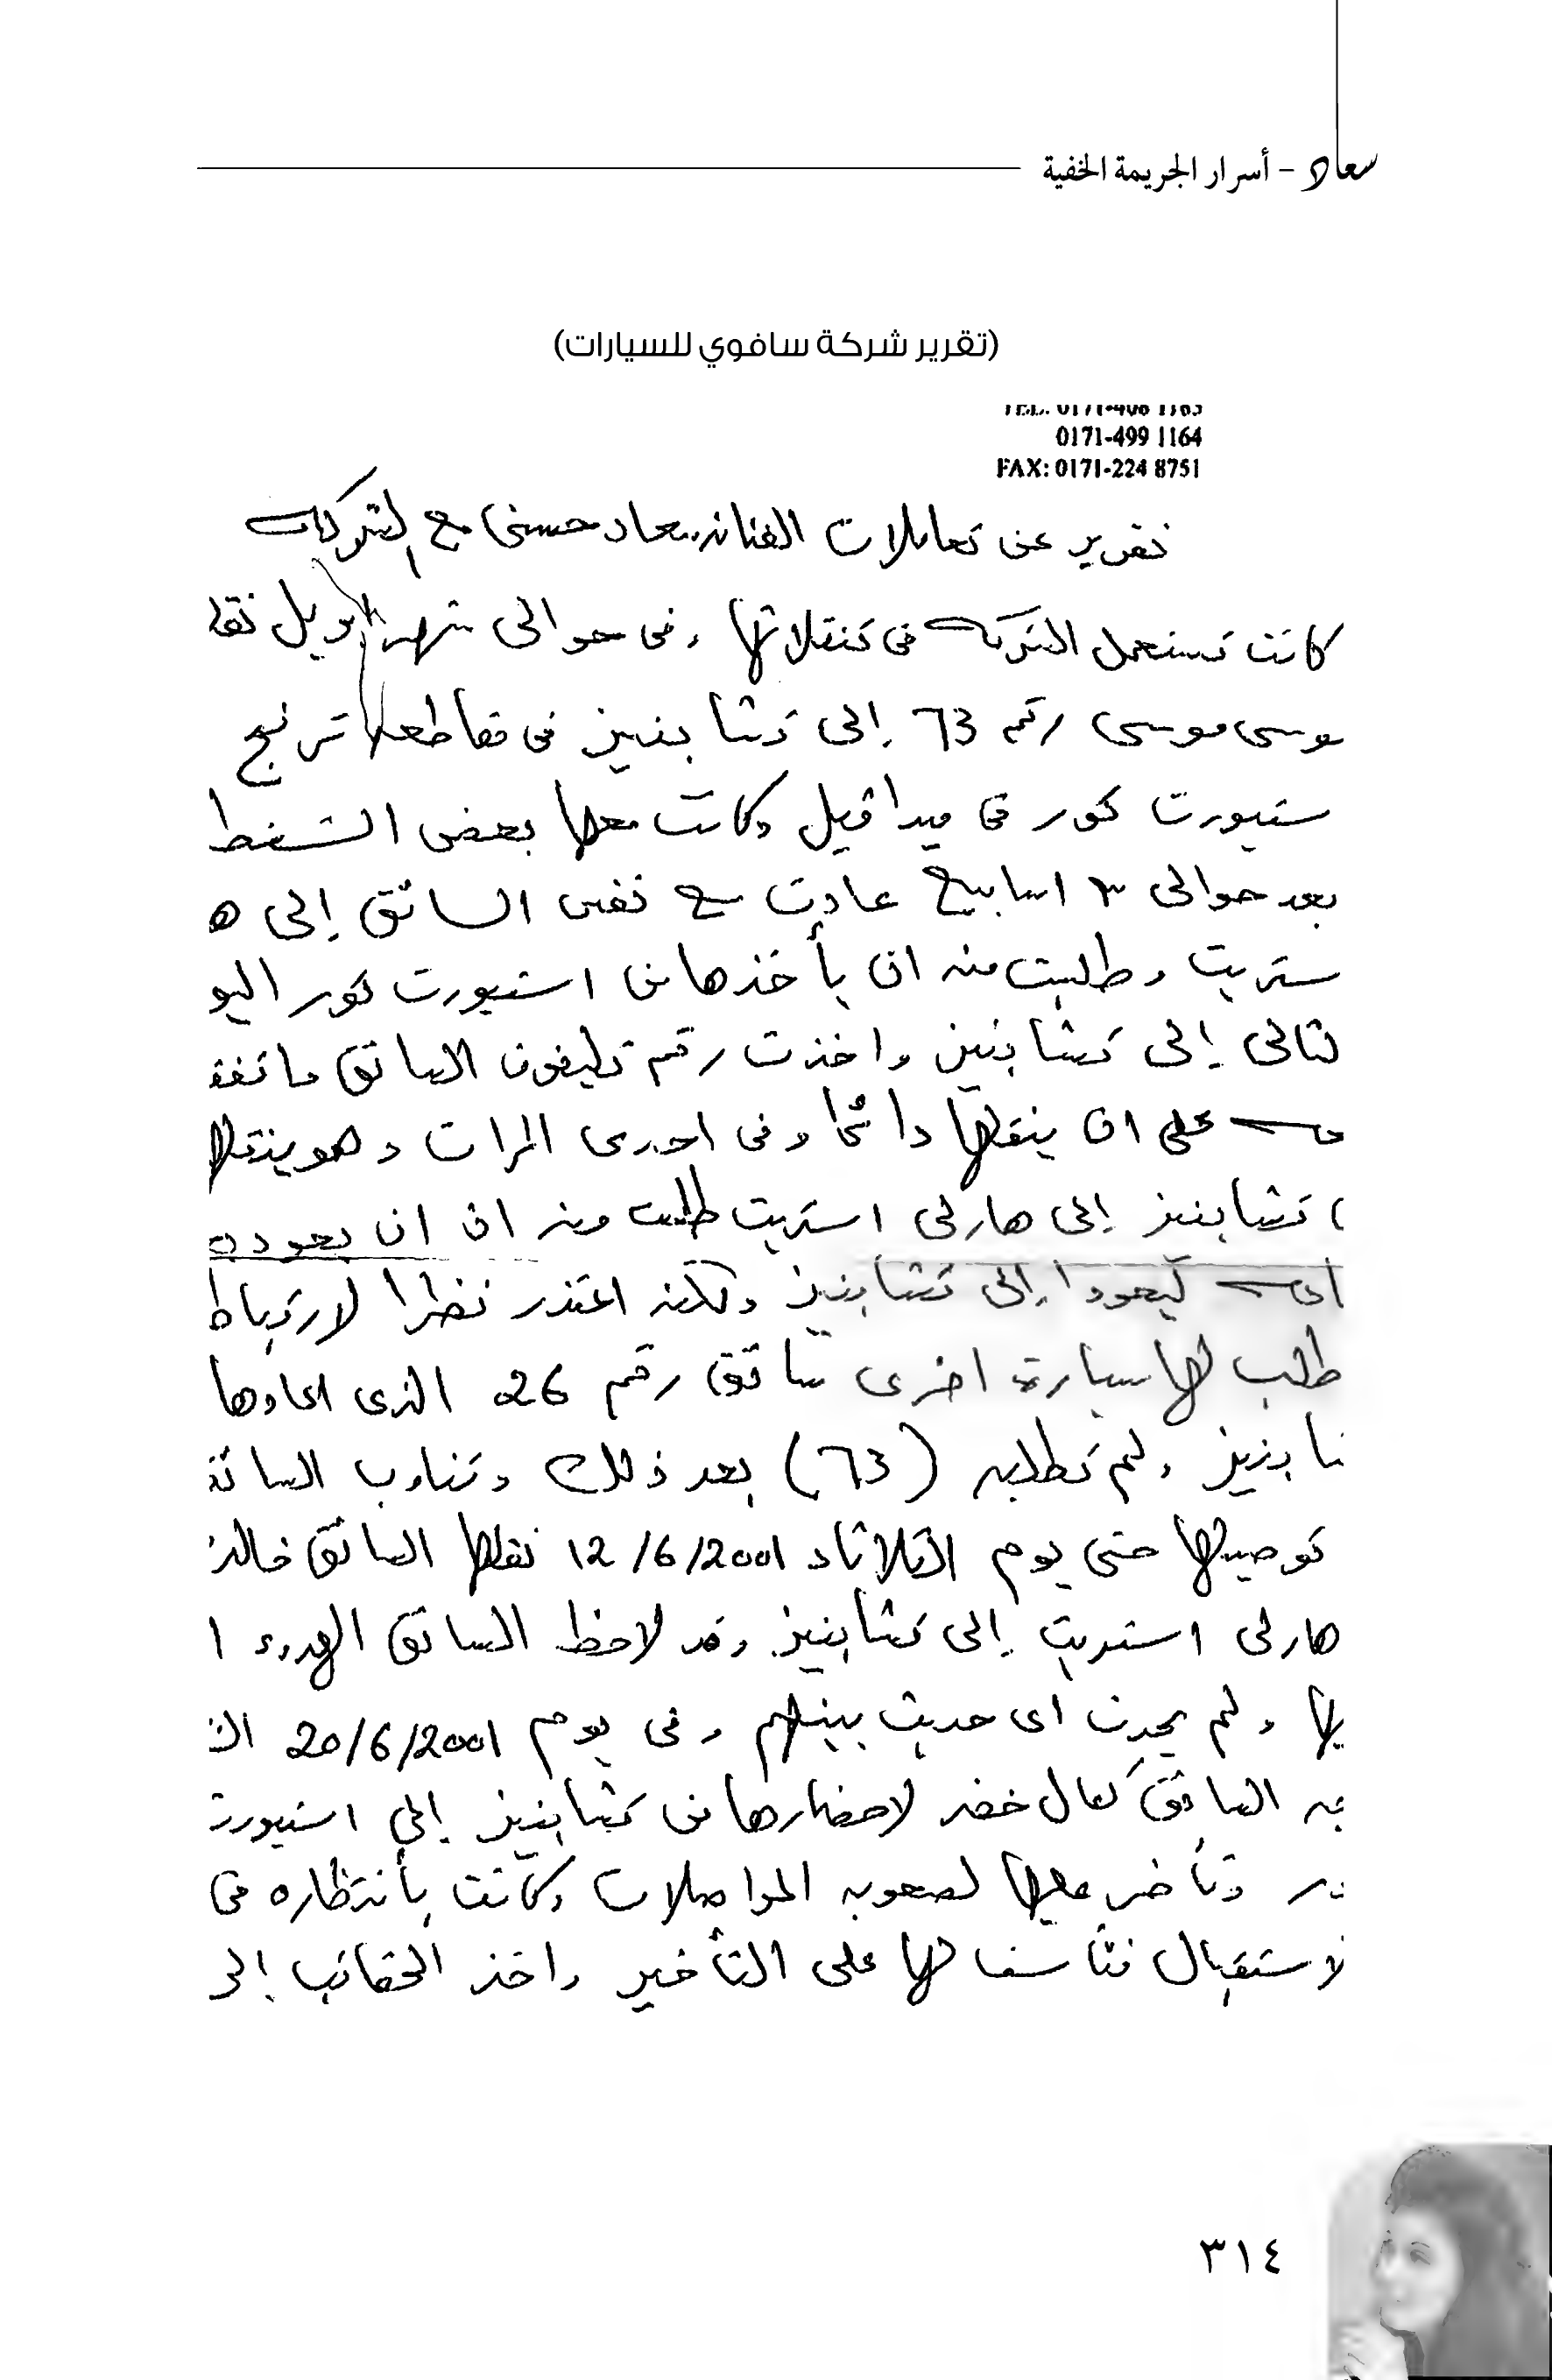 سعاد - أسرار الجريمة الخفية
(تقرير شركة سافوي للسيارات)
0171-499 1164
FAX: 0171-224 8751
تقرير عن تعاملات الفنانه سعاد حسنى مع الشركه
كانت تستعمل الشركه فى تنقلاتها وفى حوالى شهر ابريل نقله
موسى موسى رقم 63 إلى تشابنيز فى تقاطع
ستيورت تور فى ميدافيل وكانت معها بعض الشنط
بعد حوالى ٣ اسابيع عادت مع نفس السائق إلى ه
ستريت وطلبت منه ان يأخذها من استيورت تور اليو
لتالى إلى تشابنيز واخذت رقم تليفون السائق واتفقت
على ان ينقلها دائما وفى احدى المرات وهو ينقلها
تشابنيز إلى هارلى استريت طلبت منه ان ان يعود
ليعودا إلى تشابنيز ولكنه اعتذر نظرا لارتباط
طلب لها سيارة اخرى سائق رقم 26 الذى اعادها
شابنيز ولم تطلبه (63) بعد ذلك وتناوب السائق
توصيلها حتى يوم الثلاثاء 12/6/2001 نقلها السائق خالد
هارلى استريت إلى تشابنيز وقد لاحظ السائق الهدوء ا
يها ولم يحدث اى حديث بينهم وفى يوم 20/6/2001 الذ
جه السائق كمال خضر لاحضارها من تشابنيز إلى استيورت
ور وتأخر عليها لصعوبه المواصلات وكانت بأنتظاره فى
لاستقبال فتأسف لها على التأخير واخذ الحقائب إلى
٣١٤